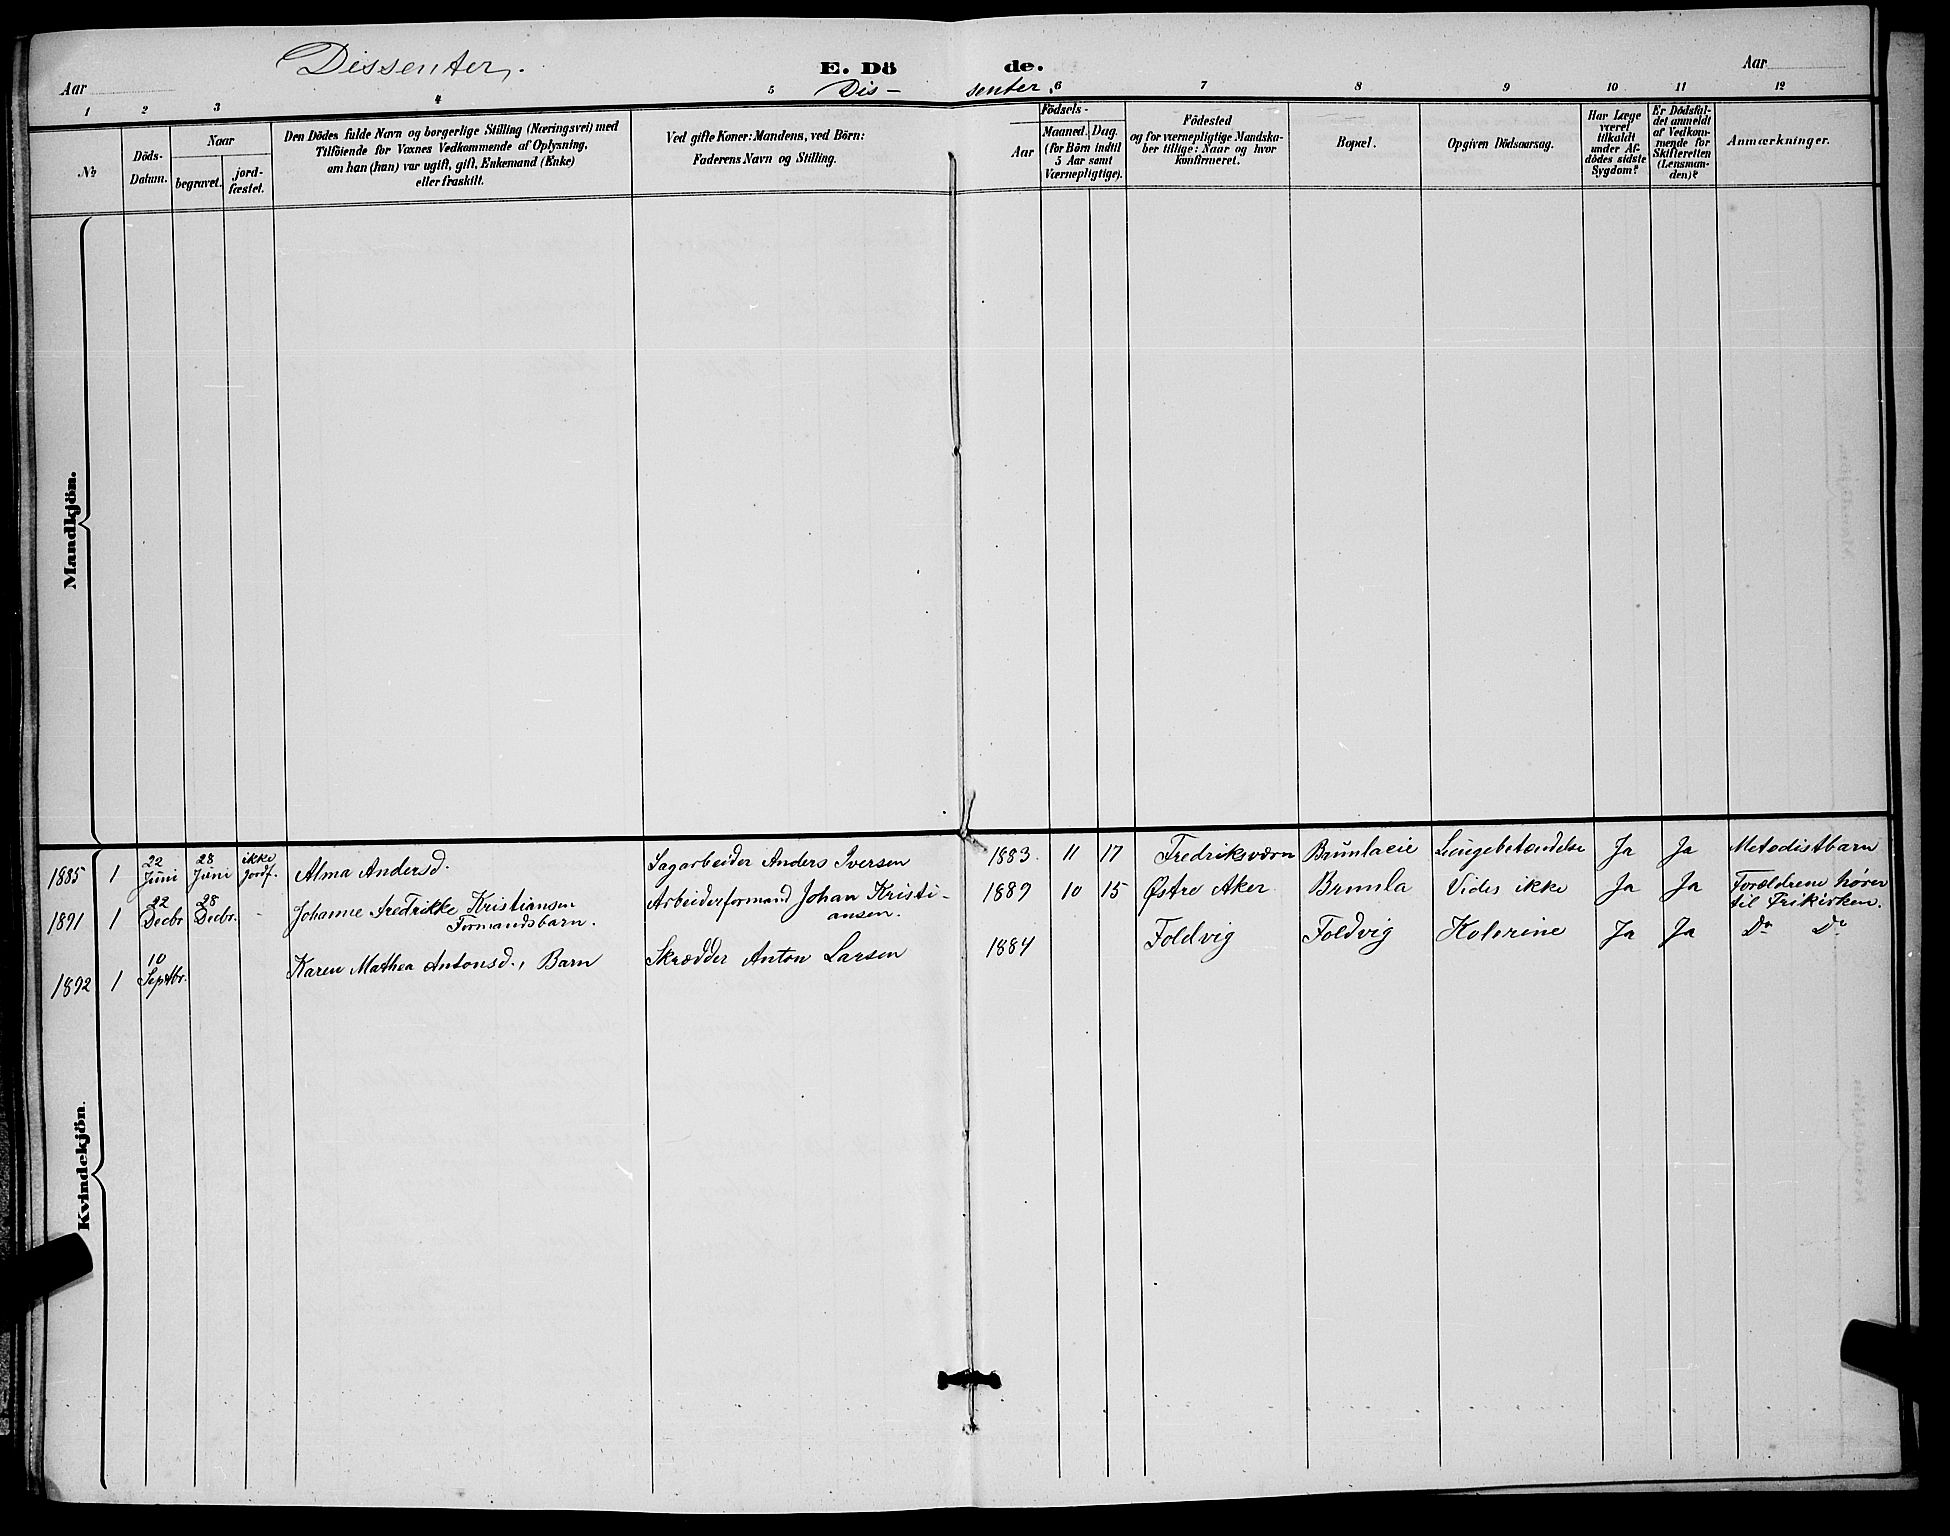 Dissenter.
E. Dö de.
Dis- senter.
Aar
Aar
1 2 3 4 5 6 7 8 9 10 11 12
No
Döds-Datum.
Naar
begravet.
jord-fæstet.
Den Dödes fulde Navn og borgerlige Stilling (Næringsvei) med
Tilföiende for Voxnes Vedkommende af Oplysning,
om han (hun) var ugift, gift, Enkemand (Enke)
eller fraskilt.
Ved gifte Koner: Mandens, ved Börn:
Faderens Navn og Stilling.
Födsels-
Aar
Maaned. Dag.
(for Börn indtil
5 Aar samt
Værnepligtige).
Födested
og for værnepligtige Mandska-
ber tillige: Naar og hvor
konfirmeret.
Bopæl.
Opgiven Dödsaarsag.
Har Læge
været
tilkaldt
under Af-
dödes sidste
Sygdom?
Er Dödsfal-
det anmeldt
af Vedkom-
mende for
Skifteretten
(Lensman-
den)?
Anmærkninger.
Mandkjön.
Kvindekjön.
1885 1 22 Juni 28 Juni ikke jordf. Alma Andersd. Sagarbeider Anders Iversen 1883. 11 17 Fredriksværn Brunlaeie Lungebetændelse Ja Ja Metodistbarn
1891 1 22 Decbr 28 Decbr. - Johanne Fredrikke Kristiansen Arbeiderformand Johan Kristi- 1889 10 15 Østre Aker Brunla Vides ikke Ja Ja Forældrene hører
Formandsbarn. ansen. til Frikirken.
1892 1 10 Septbr. Karen Mathea Antonsd., Barn Skrædder Anton Larsen 1884 Foldvig Foldvig Kolerine Ja Ja Do Do